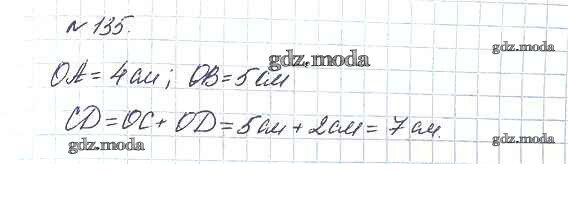 № 135.
gdz.moda
gdz.moda
OA = 4 см; OB = 5 см
CD = OC + OD = 5 см + 2 см = 7 см.
gdz.moda
gdz.moda